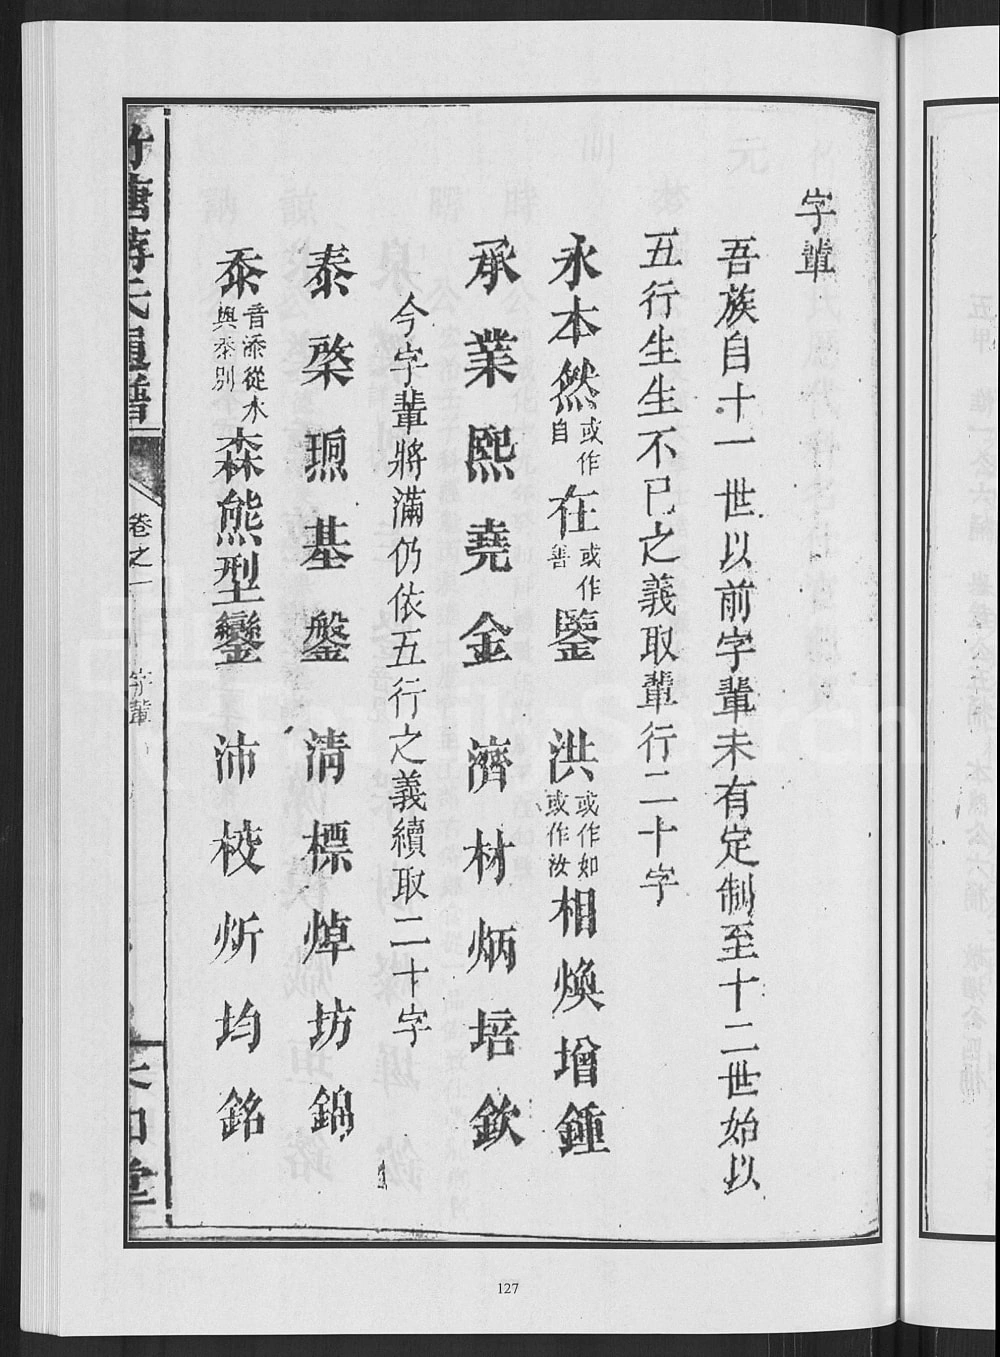 字輩
吾族自十一世以前字輩未有定制至十二世始以
五行生生不已之義取輩行二十字
永本然或作自在或作善鑒洪或作如或作汝相煥增鍾
承業熙堯金濟材炳培欽
今字輩將滿仍依五行之義續取二十字
泰棨焜基鎜清標焯坊錦
桼音添從木與泰別森熊型鑾沛枝炘均銘
唐蔣氏通譜
卷之一
字輩
127